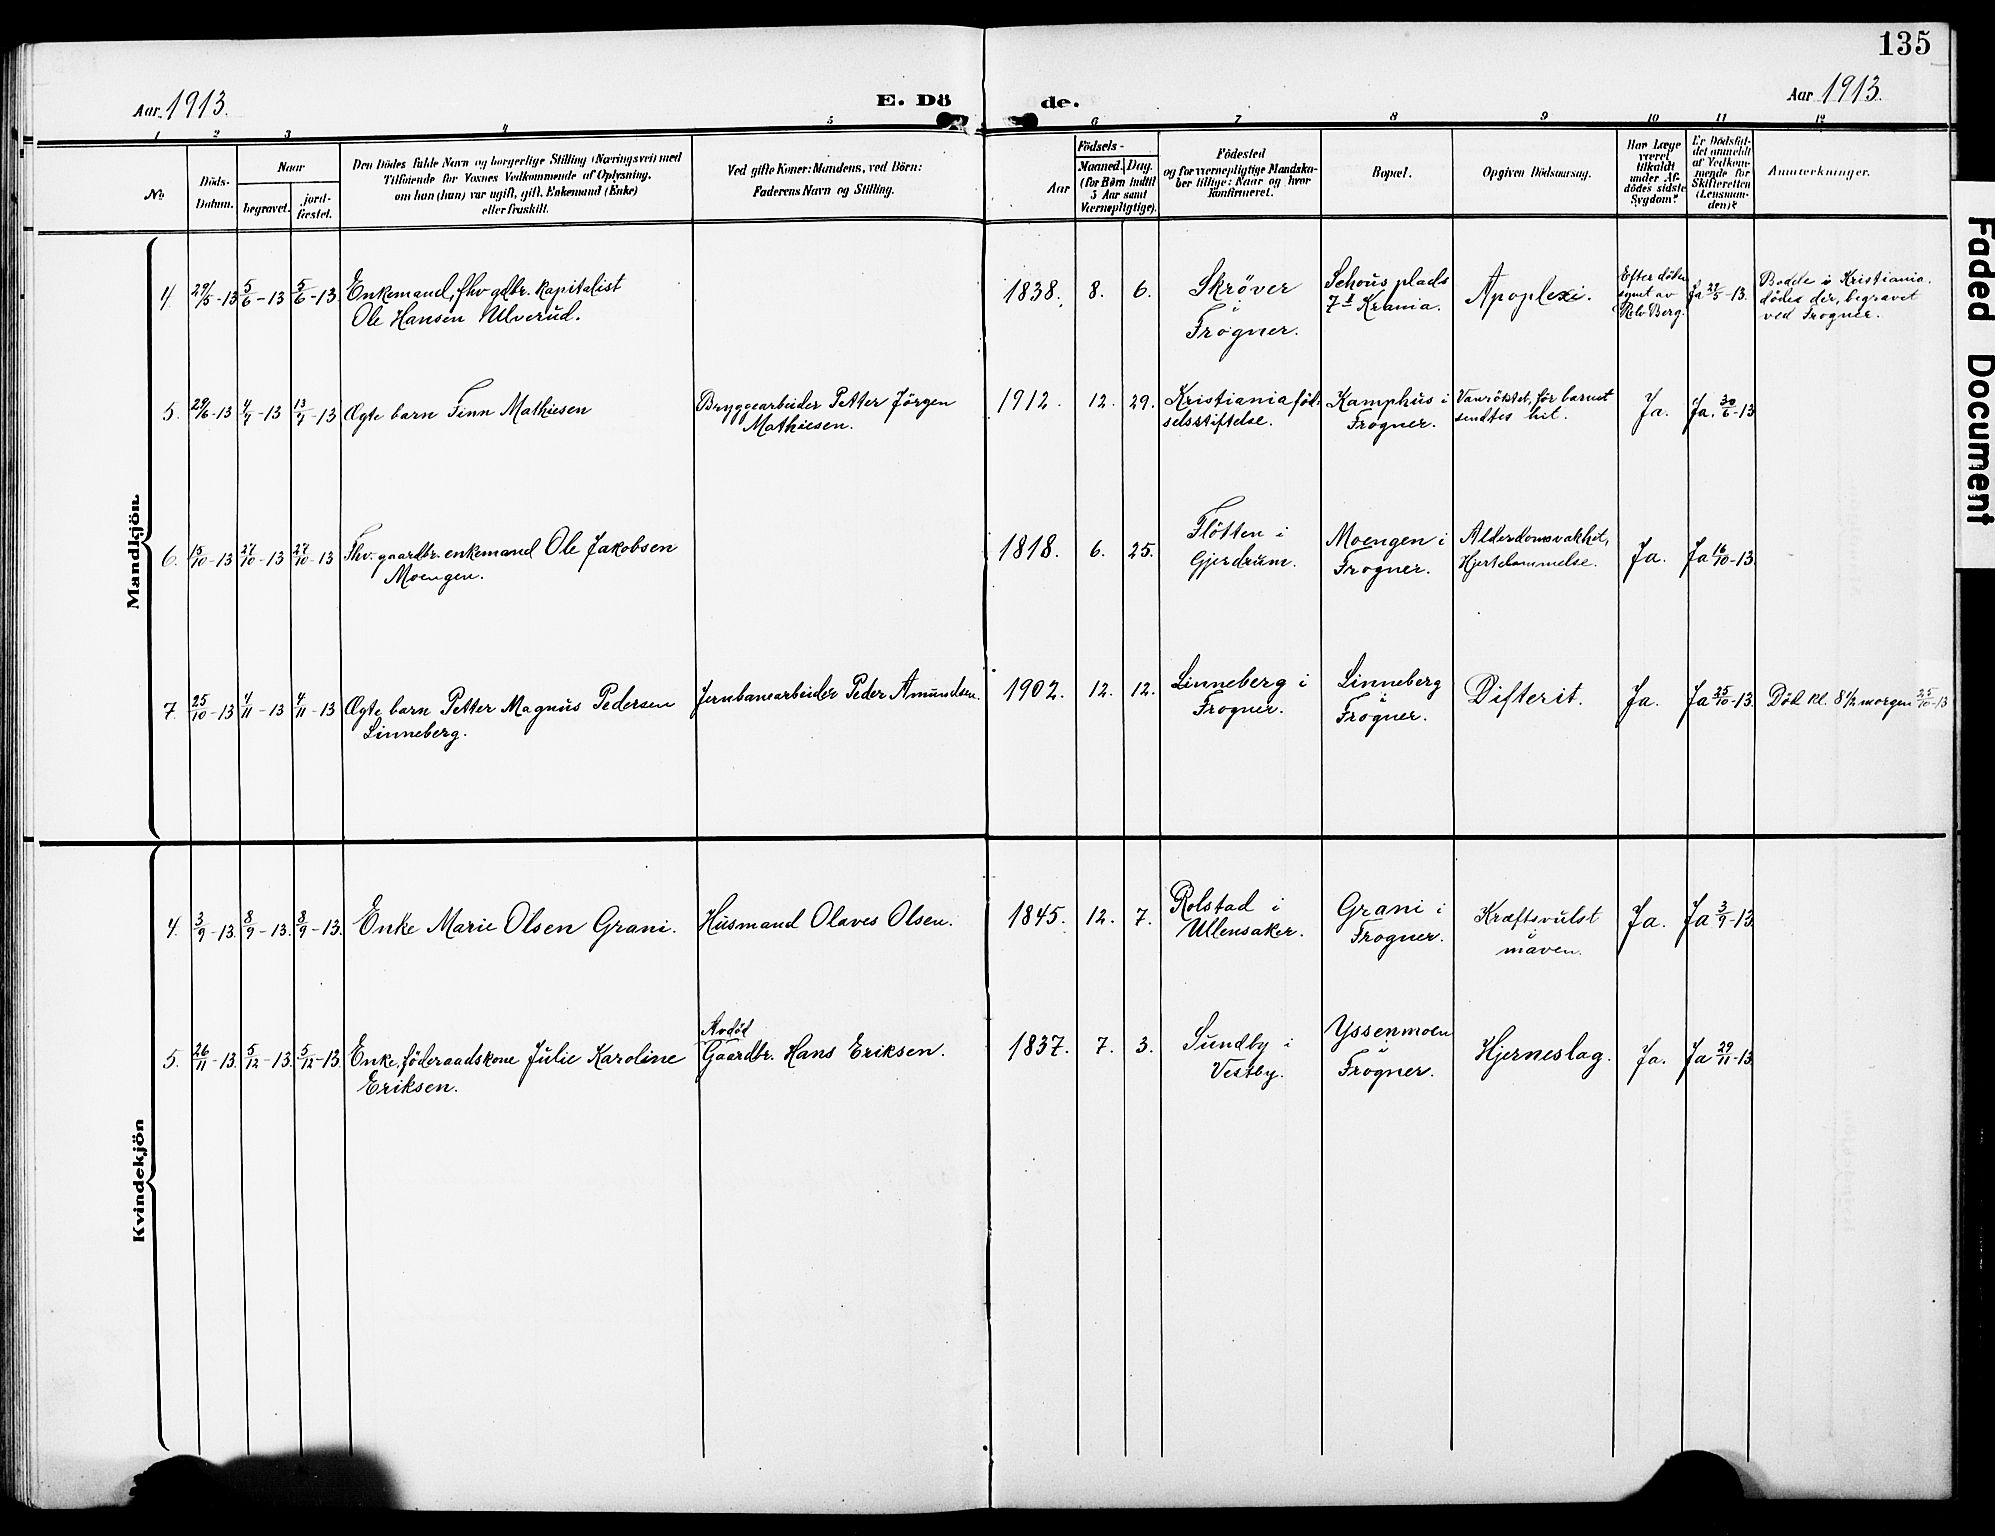 135
Aar 1913.
E. Dö de.
Aar 1913.
1 2 3 4 5 6 7 8 9 10 11 12
No.
Döds-
Datum.
Naar
begravet.
jord-
fæstet.
Den Dödes fulde Navn og borgerlige Stilling (Næringsvei) med
Tilföiende for Voxnes Vedkommende af Oplysning,
om han (hun) var ugift, gift, Enkemand (Enke)
eller fraskilt.
Ved gifte Koner: Mandens, ved Börn:
Faderens Navn og Stilling.
Födsels-
Aar
Maaned.
Dag.
(for Börn indtil
5 Aar samt
Værnepligtige).
Födested
og for værnepligtige Mandska-
ber tillige: Naar og hvor
konfirmeret.
Bopæl.
Opgiven Dödsaarsag.
Har Læge
været
tilkaldt
under Af-
dödes sidste
Sygdom?
Er Dödsfal-
det anmeldt
af Vedkom-
mende for
Skifteretten
(Lensman-
den)?
Anmærkninger.
Mandkjön
4. 29/5-13 5/6-13 5/6-13 Enkemand, fhv gdbr. kapitalist
Ole Hansen Ulverud.
1838. 8. 6.
Skrøver
i
Frogner.
Schous plads
7 I Krania.
Apoplexi.
Efter døds-
synet av
Berg.
Ja 29/5-13.
Bodde i Kristiania.
døde der, begravet
ved Frogner.
5. 29/6-13 4/7-13 13/7-13 Ægte barn Finn Mathiesen
Bryggearbeider Petter Jørgen
Mathiesen.
1912. 12. 29.
Kristiania fød-
selsstiftelse.
Kamphus i
Frogner.
Vanrøktet, før barnet
sendtes hit.
Ja.
Ja. 30/6-13
6. 15/10-13 27/10-13 27/10-13 Fhv. gaardbr. enkemand Ole Jakobsen
Moengen.
1818. 6. 25.
Fløtten i
Gjerdrum.
Moengen i
Frogner.
Alderdomsvakhet,
Hjertelammelse.
Ja.
Ja 16/10-13.
7. 25/10-13 4/11-13 4/11-13 Ægte barn Petter Magnus Pedersen
Linneberg.
Jernbanearbeider Peder Amundsen.
1902. 12. 12.
Linneberg i
Frogner.
Linneberg
i
Frogner.
Difterit.
Ja.
Ja 25/10-13.
Død kl. 8 1/2 morgen 25/10-13
Kvindekjön
4. 3/9-13. 8/9-13. 8/9-13. Enke Marie Olsen Grani.
Husmand Olaves Olsen.
1845. 12. 7.
Rolstad i
Ullensaker.
Grani i
Frogner.
Kræftsvulst
i
maven.
Ja.
Ja 3/9-13.
5. 26/11-13. 5/12-13. 5/12-13. Enke, føderaadskone Julie Karoline
Eriksen.
Avdød
Gaardbr. Hans Eriksen.
1837. 7. 3.
Sundby i
Vestby.
Yssenmoen
i
Frogner.
Hjerneslag.
Ja.
Ja 29/11-13.
Faded Document